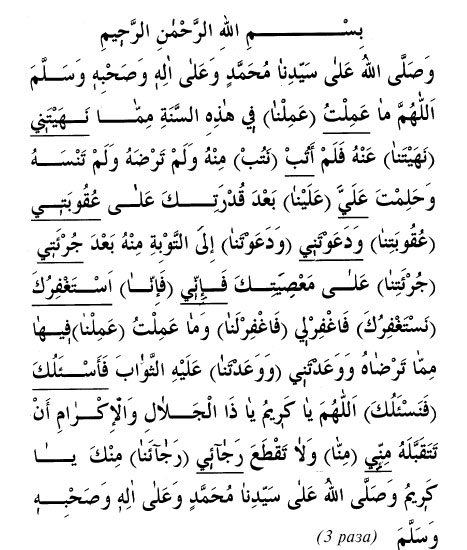 بِسْــــــــــمِ اللهِ الرَّحْمٰنِ الرَّحِيمِ
وَصَلَّى اللهُ عَلٰى سَيِّدِنٰا مُحَمَّدٍ وَعَلٰى اٰلِهٖ وَصَحْبِهٖ وَسَـلَّمَ
اَللّٰهُمَّ مٰا عَمِلْتُ (عَمِلْنٰا) فِي هٰذِهِ السَّنَةِ مِمّٰـــا نَـهَيْتَنِي
(نَهَيْتَنٰا) عَنْهُ فَلَمْ أَتُبْ (نَتُبْ) مِنْهُ وَلَمْ تَرْضَهُ وَلَمْ تَنْسَـــهُ
وَحَلِمْتَ عَلَيَّ (عَلَيْنٰا) بَعْدَ قُدْرَتِـــكَ عَلٰـــى عُقُوبَتِـــي
(عُقُوبَتِنٰا) وَدَعَوْتَنِي (وَدَعَوْتَنٰا) إِلَى التَّوْبَةِ مِنْهُ بَعْدَ جُرْئَتِي
(جُرْئَتِنٰا) عَلٰـــى مَعْصِيَتِـــكَ فَـــإِنِّي (فَإِنّٰـا) اَسْـتَغْفِرُكَ
(نَسْتَغْفِرُكَ) فَاغْفِرْلِي (فَاغْفِرْلَنٰا) وَمٰا عَمِلْتُ (عَمِلْنٰا) فِيـهٰا
مِمّٰا تَرْضٰاهُ وَوَعَدْتَنِي (وَوَعَدْتَنٰا) عَلَيْهِ الثَّوٰابَ فَأَسْـــئَلُكَ
(فَنَسْئَلُكَ) اَللّٰهُمَّ يٰا كَرِيمُ يٰا ذَا الْجَـــلٰالِ وَالْاِكْـــرٰامِ أَنْ
تَتَقَبَّلَهُ مِنِّي (مِنّٰا) وَلٰا تَقْطَعَ رَجٰائِي (رَجٰآئَنٰا) مِنْكَ يـــٰا
كَرِيمُ وَصَلَّى اللهُ عَلٰى سَيِّدِنٰا مُحَمَّدٍ وَعَلٰى اٰلِهٖ وَصَحْبِـــهٖ
وَسَلَّمَ (3 раза)